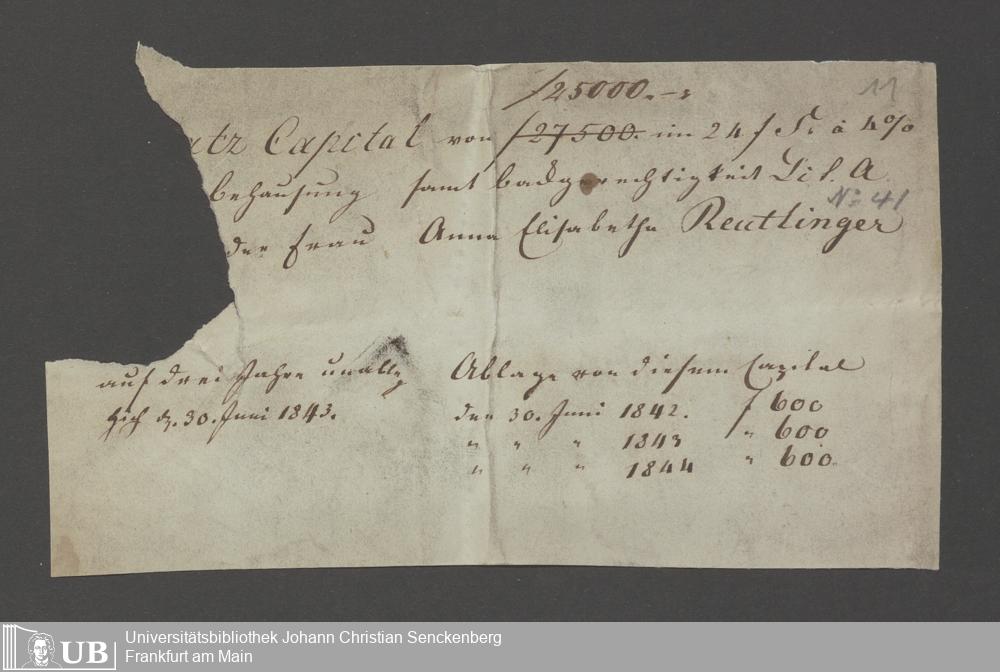 f 25000.-
11
atz Capital von f 27500. im 24 f F. à 4%
behausung samt backgerechtigkeit Lit. A
No 41
der Frau Anna Elisabetha Reutlinger
auf drei Jahre unableg
lich d. 30. Juni 1843.
Ablage von diesem Capital
den 30. Juni 1842. f 600
" " " 1843 " 600
" " " 1844 " 600.
UB
Universitätsbibliothek Johann Christian Senckenberg
Frankfurt am Main